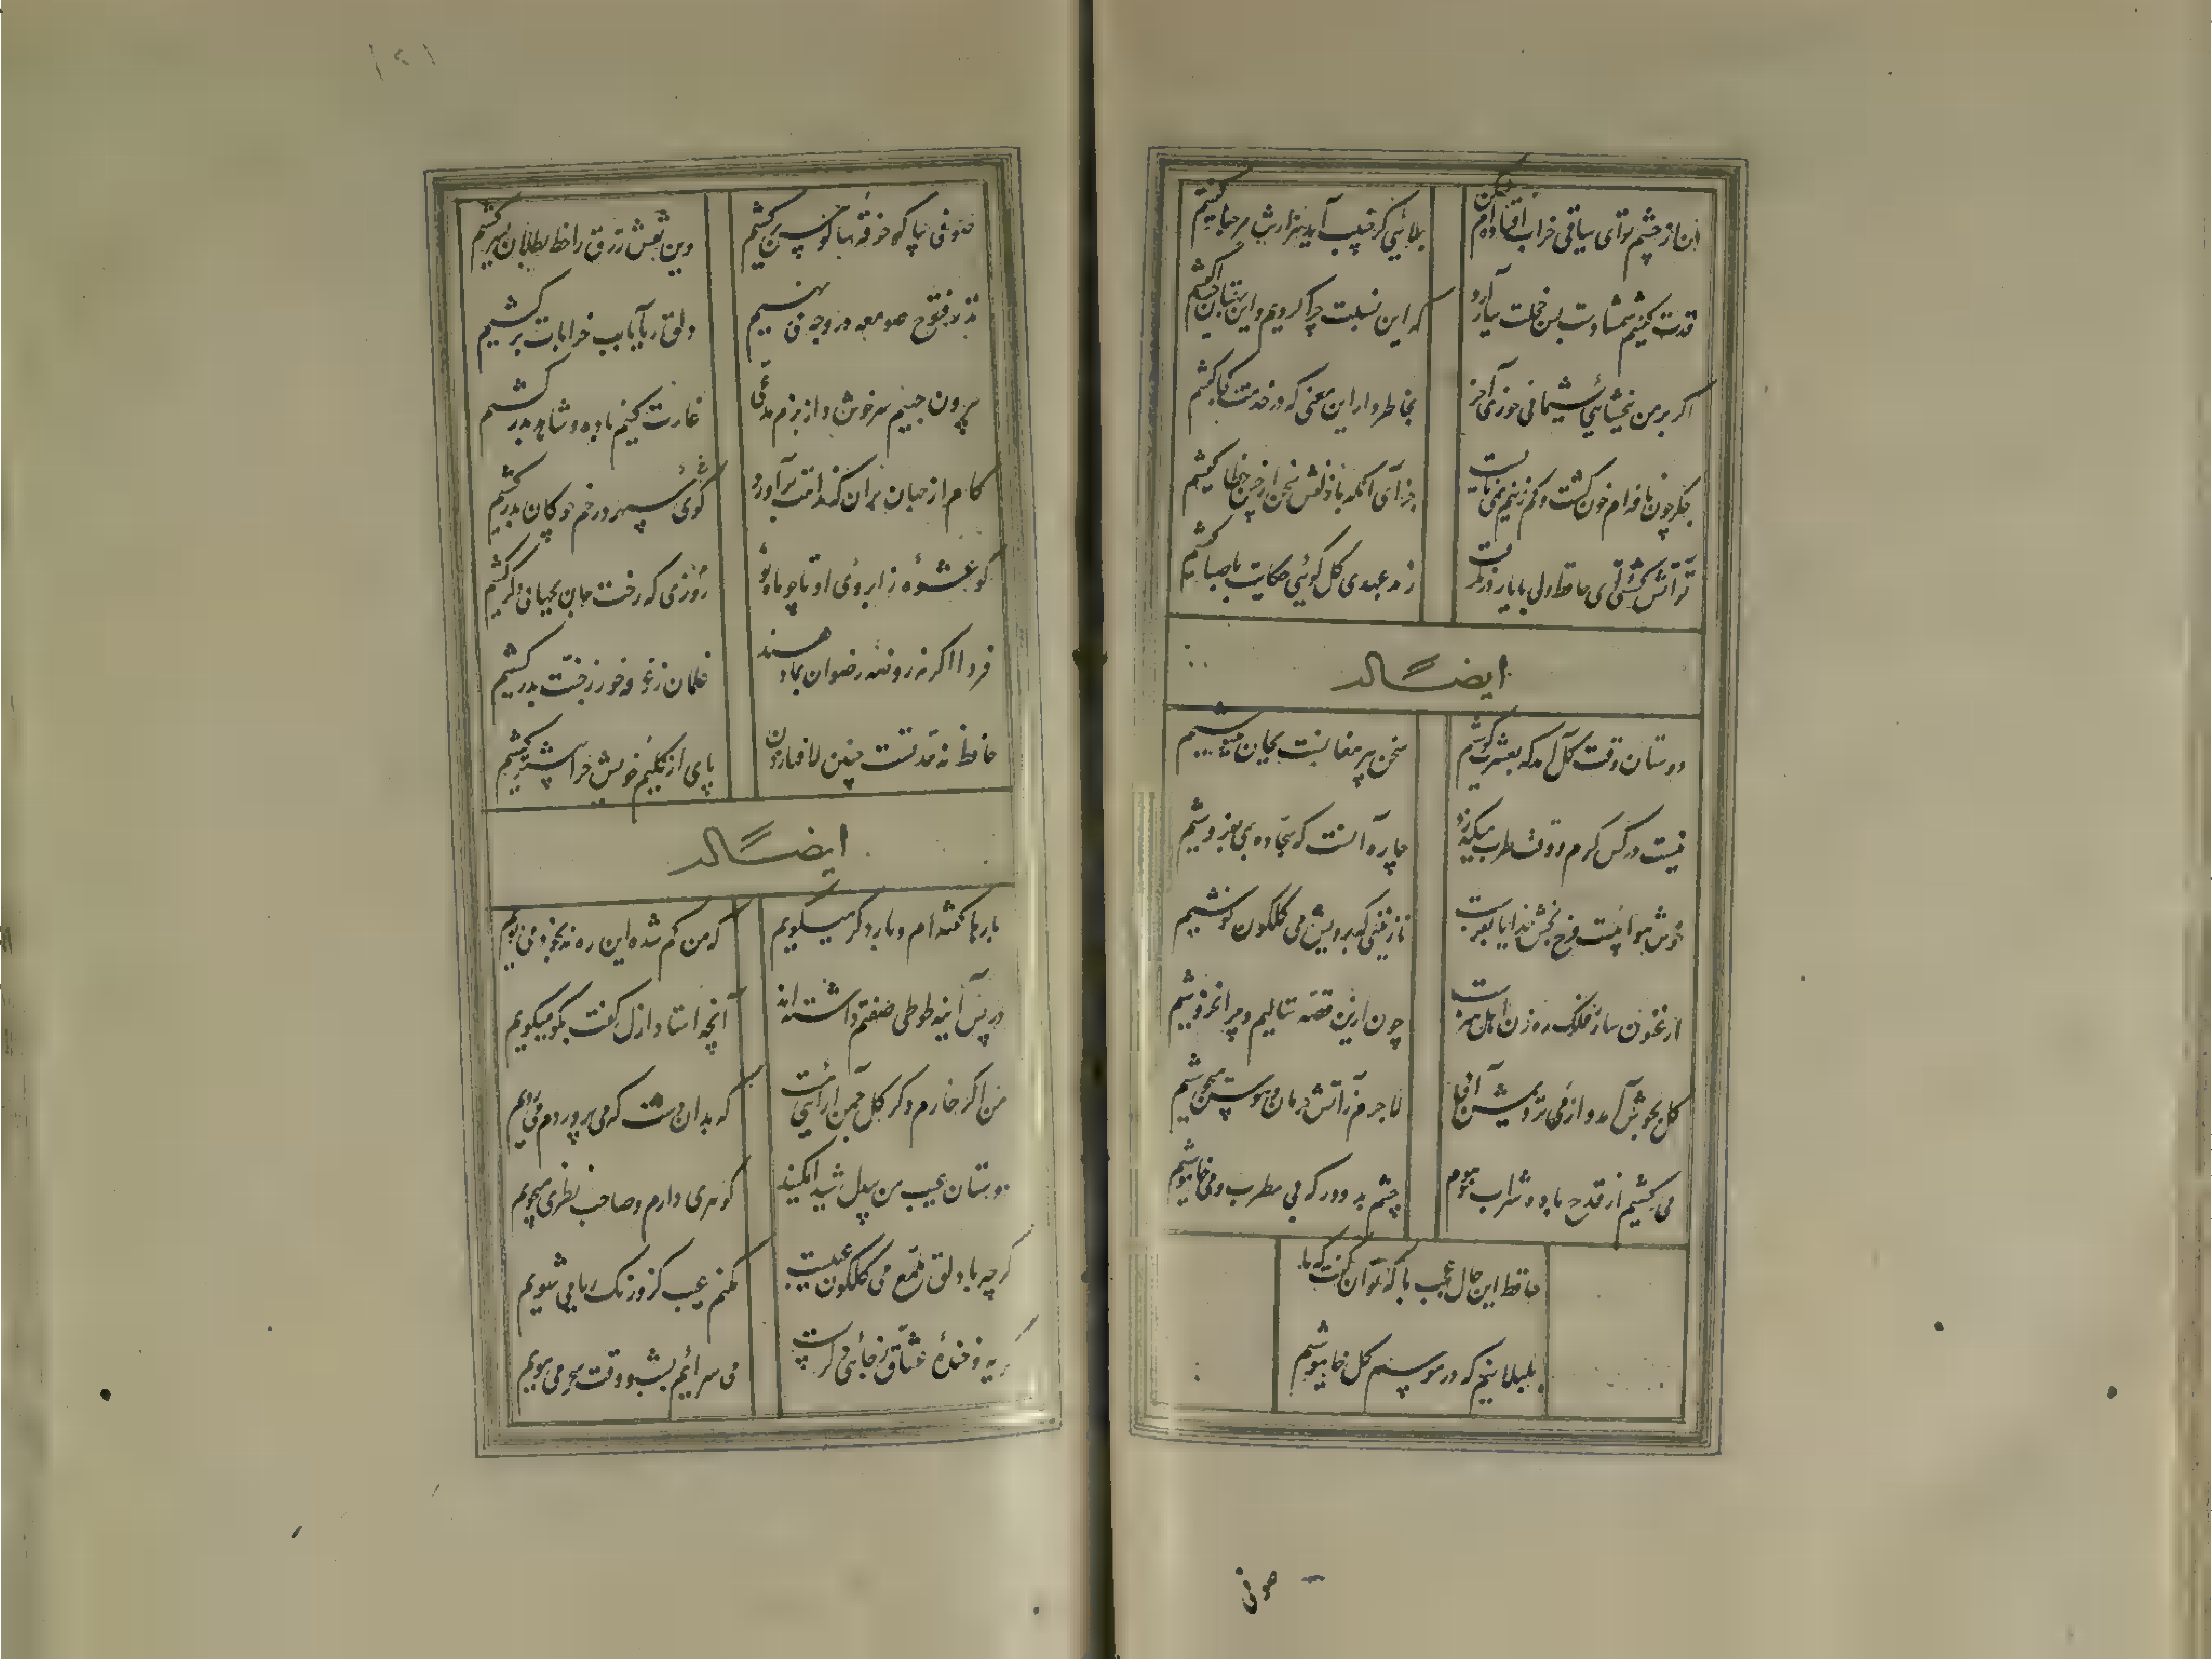 من از چشم تو ای ساقی خراب افتاده‌ام لیکن
بلائی کز حبیب آید هزارش مرحبا گفتیم
قدت گفتیم شمشادست بس خجلت ببار آورد
که این نسبت چرا کردیم و این بهتان چرا گفتیم
اگر بر من نبخشائی پشیمانی خوری آخر
بخاطر دار این معنی که در خدمت کجا گفتیم
جگر چون نافه‌ام خون گشت و کم زینم نمی‌بایست
جزای آنکه با زلفش سخن از چین خطا گفتیم
تو آتش گشتی ای حافظ ولی با یار در نگرفت
ز بد عهدی گل گوئی حکایت با صبا گفتیم
ایضاً له
دوستان وقت گل آمد که بعشرت کوشیم
سخن پیر مغانست بجان بنیوشیم
نیست در کس کرم و وقت طرب میگذرد
چاره آنست که سجاده بمی بفروشیم
خوش هوائیست فرح بخش خدایا بفرست
نازنینی که برویش می گلگون نوشیم
ارغنون ساز فلک رهزن اهل هنرست
چون ازین قصه ننالیم و چرا نخروشیم
گل بجوش آمد و از می نزدیمش آبی
لاجرم ز آتش حرمان و هوس میجوشیم
می کشیم از قدح باده شراب موهوم
چشم بد دور که بی مطرب و می خاموشیم
حافظ این حال عجب با که توان گفت که ما
بلبلانیم که در موسم گل خاموشیم
صوفی
۱۲۱
صوفی بیا که خرقه سالوس بر کشیم
وین نقش زرق را خط بطلان بسر کشیم
نذر و فتوح صومعه در وجه می نهیم
دلق ریا بآب خرابات بر کشیم
بیرون جهیم سرخوش و از بزم مدعی
غارت کنیم باده و شاهد ببر کشیم
کام از جهان بران که خدایت برآورد
گوی سپهر در خم چوگان زر کشیم
کو عشوه‌ای ز ابروی او تا چو ماه نو
روزی که رخت جان بجهانی دگر کشیم
فردا اگر نه روضه رضوان بما دهند
غلمان ز غرفه حور ز جنت بدر کشیم
حافظ نه قد تست چنین لافها زدن
پای از گلیم خویش چرا بیشتر کشیم
ایضاً له
بارها گفته‌ام و بار دگر میگویم
که من گم شده این ره نه بخود می پویم
در پس آینه طوطی صفتم داشته‌اند
آنچه استاد ازل گفت بگو میگویم
من اگر خارم و گر گل چمن آرائی هست
که بدان دست که می پروردم می رویم
دوستان عیب من بیدل شیدا مکنید
گوهری دارم و صاحب نظری میجویم
گرچه با دلق ملمع می گلگون عیبست
مکنم عیب کزو رنگ ریا می شویم
گریه و خنده عشاق ز جائی دگرست
می سرایم بشب و وقت سحر می مویم